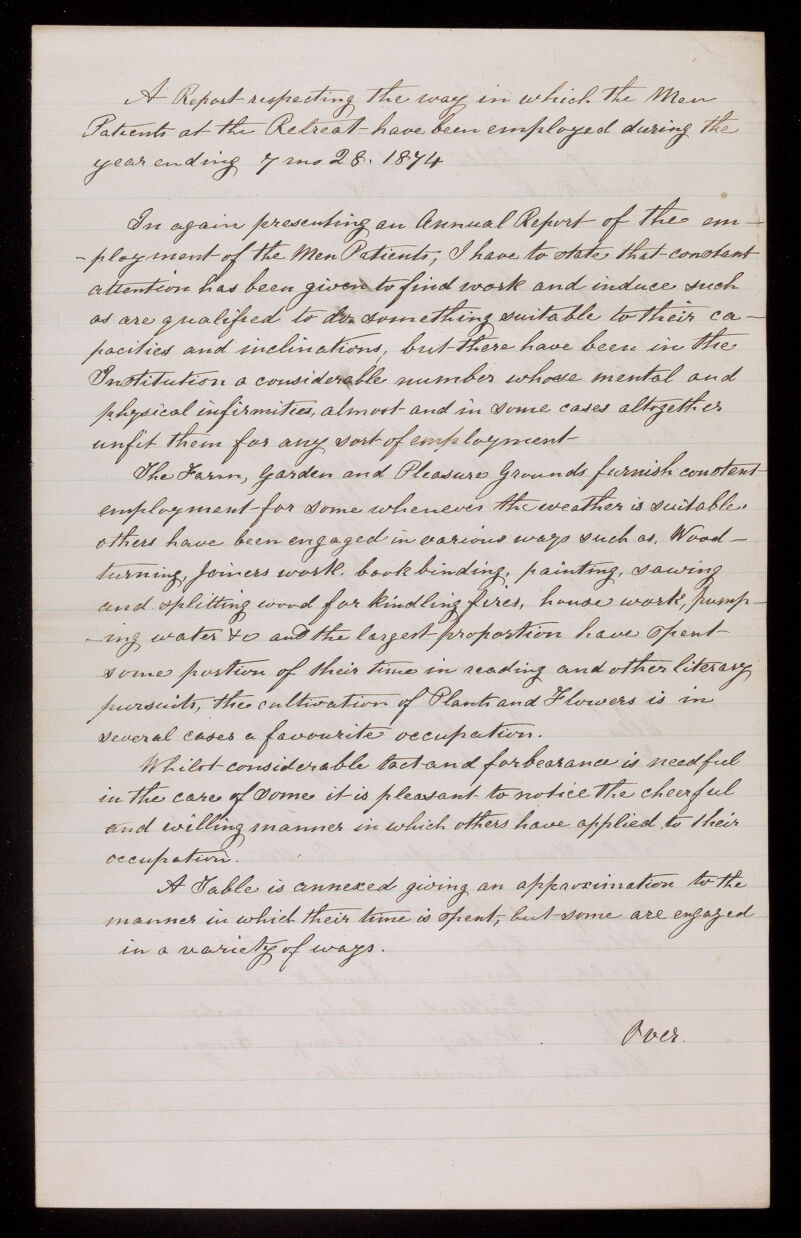 A Report respecting the way in which the Men
Patients at the Retreat have been employed during the
year ending 7 mo 28. 1874
In again presenting an Annual Report of the em-
-ployment of the Men Patients, I have to state that constant
attention has been given to find work and induce such
as are qualified to do something suitable to their ca-
pacities and inclinations, but there have been in the
Institution a considerable number whose mental and
physical infirmities, almost and in some cases altogether
unfit them for any sort of employment
The Farm, Garden and Pleasure Grounds furnish constant
employment for some whenever the weather is suitable.
others have been engaged in various ways such as, Wood-
turning, Joiners work. book binding, painting, sawing
and splitting wood for kindling fires, house work, pump-
-ing water &c and the largest proportion have spent
some portion of their time in reading and other literary
pursuits, the cultivation of Plants and Flowers is in
several cases a favourite occupation.
Whilst considerable tact and forbearance is needful
in the care of some it is pleasant to notice the cheerful
and willing manner in which others have applied to their
occupation.
A Table is annexed giving an approximation to the
manner in which their time is spent, but some are engaged
in a variety of ways.
Over.